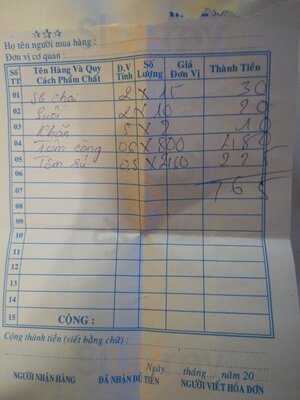 Họ tên người mua hàng :
Đơn vị cơ quan :
Số TT Tên Hàng Và Quy Cách Phẩm Chất Đ.V Tính Số Lượng Giá Đơn Vị Thành Tiền
01 Sò chả 2 X 15 30
02 Suối 2 X 10 20
03 Khăn 5 X 2 10
04 Tôm công 0,6 X 800 480
05 Tôm sú 0,5 X
06
07
08
09
10
11
12
13
14
15
CỘNG :
Cộng thành tiền (viết bằng chữ) :
Ngày.... tháng.... năm 20
NGƯỜI NHẬN HÀNG ĐÃ NHẬN ĐỦ TIỀN NGƯỜI VIẾT HÓA ĐƠN